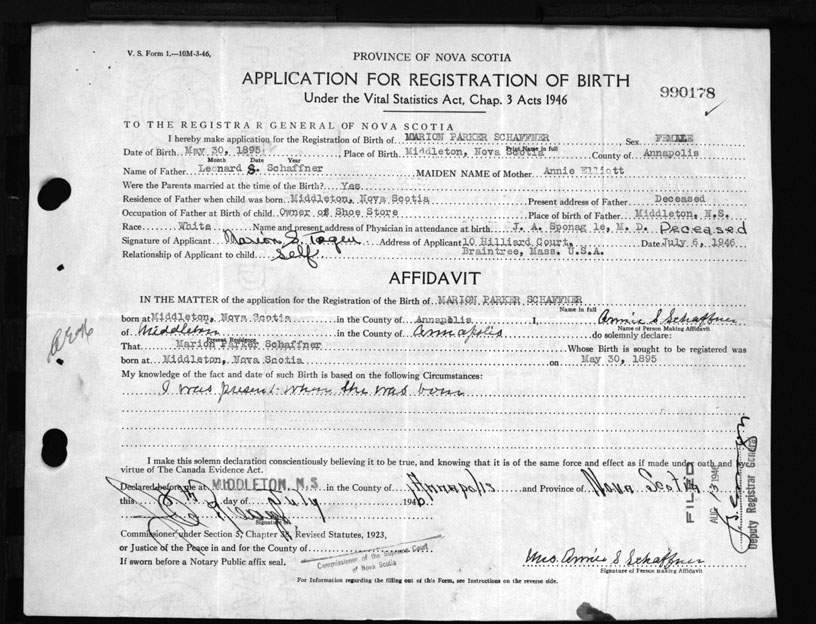 V. S. Form 1.—10M-3-46.
PROVINCE OF NOVA SCOTIA
APPLICATION FOR REGISTRATION OF BIRTH
990178
Under the Vital Statistics Act, Chap. 3 Acts 1946
TO THE REGISTRAR GENERAL OF NOVA SCOTIA
I hereby make application for the Registration of Birth of MARION PARKER SCHAFFNER Sex FEMALE
Print Name in full
Date of Birth May 30, 1895 Place of Birth Middleton, Nova Scotia County of Annapolis
Month Date Year
Name of Father Leonard S. Schaffner MAIDEN NAME of Mother Annie Elliott
Were the Parents married at the time of the Birth? Yes
Residence of Father when child was born Middleton, Nova Scotia Present address of Father Deceased
Occupation of Father at Birth of child Owner of Shoe Store Place of birth of Father Middleton, N.S.
Race White Name and present address of Physician in attendance at birth J. A. Sponagle, M. D. Deceased
Signature of Applicant Marion S. Address of Applicant 10 Hilliard Court, Date July 6, 1946
Relationship of Applicant to child self Braintree, Mass. U.S.A.
AFFIDAVIT
IN THE MATTER of the application for the Registration of the Birth of MARION PARKER SCHAFFNER
Name in full
born at Middleton, Nova Scotia in the County of Annapolis I, Annie S Schaffner
Name of Person Making Affidavit
of Middleton in the County of Annapolis do solemnly declare:
Present Residence
That Marion Parker Schaffner Whose Birth is sought to be registered was
born at Middleton, Nova Scotia on May 30, 1895
My knowledge of the fact and date of such Birth is based on the following Circumstances:
I was present when she was born
I make this solemn declaration conscientiously believing it to be true, and knowing that it is of the same force and effect as if made under oath and by
virtue of The Canada Evidence Act.
Declared before me at MIDDLETON, N.S. in the County of Annapolis and Province of Nova Scotia
this day of July 1946.
Signature
Commissioner under Section 5, Chapter Revised Statutes, 1923,
or Justice of the Peace in and for the County of
Commissioner of the Supreme Court
of Nova Scotia
If sworn before a Notary Public affix seal.
Mrs. Annie S Schaffner
Signature of Person making Affidavit
For Information regarding the filling out of this Form, see Instructions on the reverse side.
FILED
AUG 13 1946
Deputy Registrar General